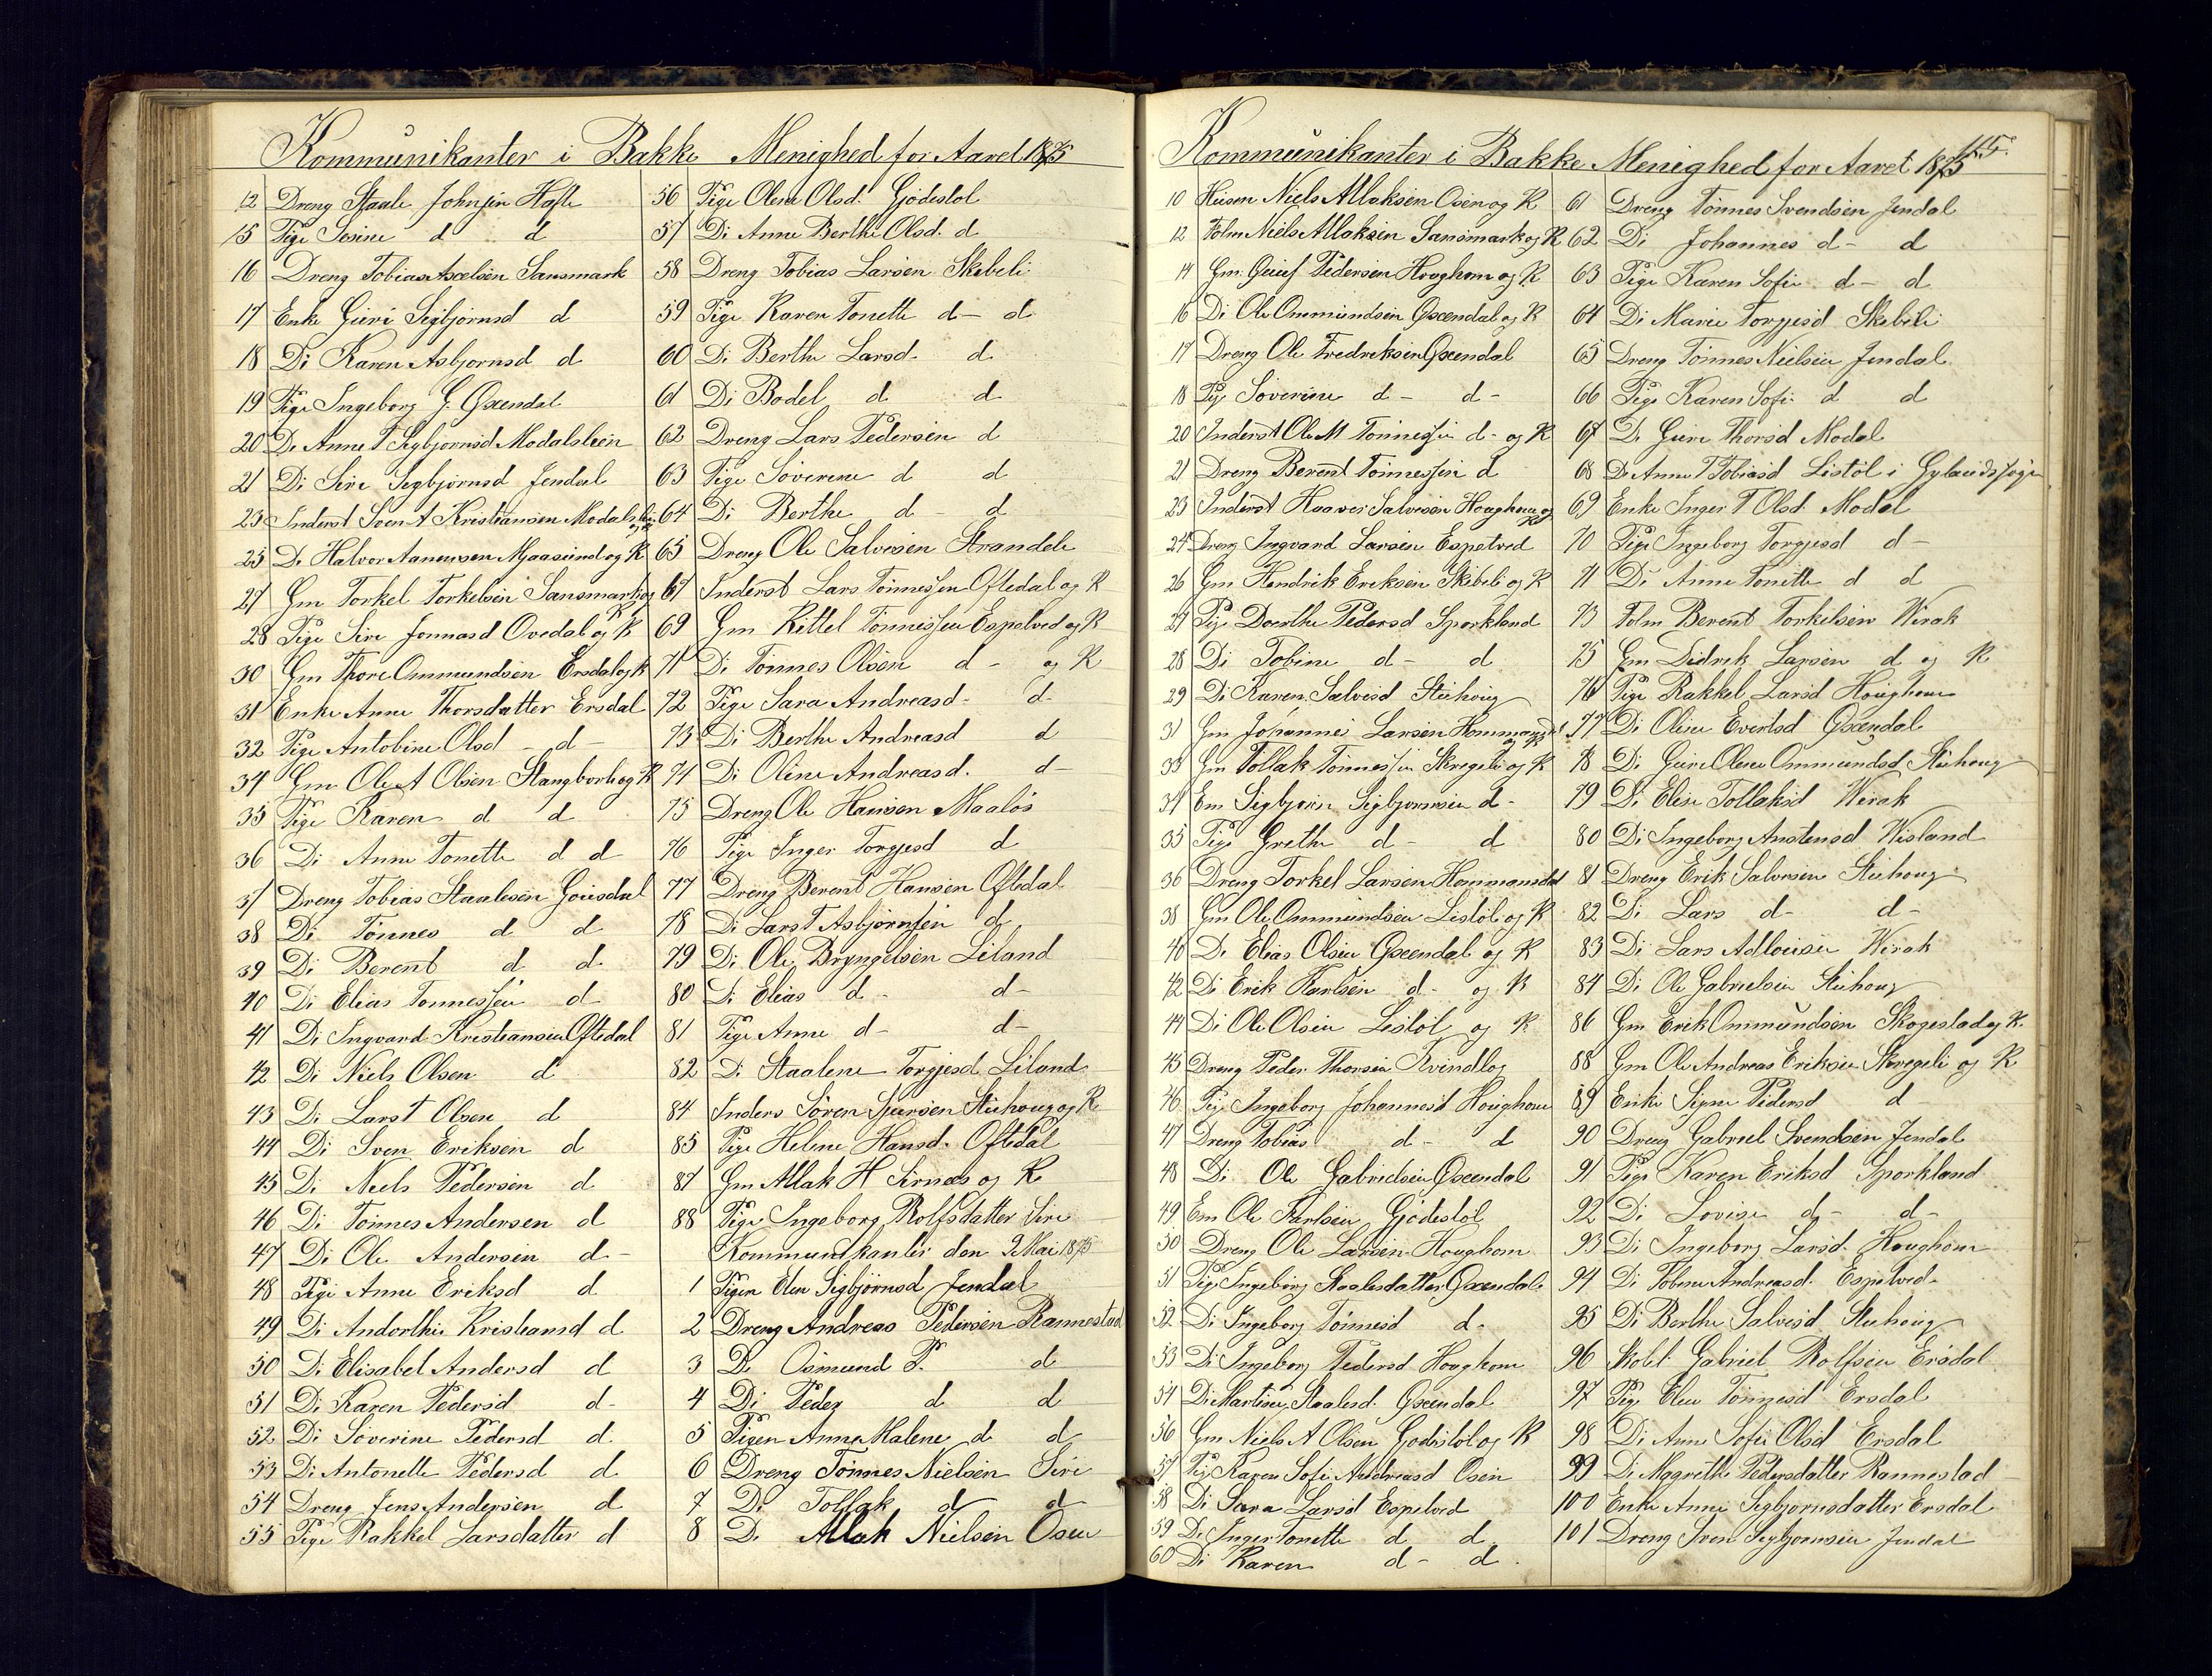 Kommunikanter i Bakke Menighed for Aaret 1875
12 Dreng Staale Johnsen Hafte
15 Pige Sosine d d
16 Dreng Tobias Axelsen Sansmark
17 Enke Guri Sigbjørnsd d
18 Di Karen Asbjørnsd d
19 Pige Ingeborg G. Øxendal
20 Di Anne T Sigbjørnsd Modalsleen
21 Di Siri Sigbjørnsd Jendal
23 Inderst Sven A Kristiansen og K
25 Di Halvor Aanensen Maasund og K
27 Gm Torkel Torkelsen Sansmark og K
28 Pige Siri Jonnasd Ovedal og K
30 Gm Thore Ommundsen Ersdal og K
31 Enke Anne Thorsdatter Ersdal
32 Pige Antobine Olsd d
34 Gm Ole A Olsen Stangborli og K
35 Pige Karen d d
36 Di Anne Tonette d d
37 Dreng Tobias Staalesen Gousdal
38 Di Tønnes d d
39 Di Berent d d
40 Di Elias Tønnessen d
41 Di Ingvard Kristiansen Oftedal
42 Di Niels Olsen d
43 Di Lars T Olsen d
44 Di Sven Eriksen d
45 Di Niels Pedersen d
46 Di Tønnes Andersen d
47 Di Ole Andersen d
48 Pige Anne Eriksd d
49 Di Andorthie Kristiansd d
50 Di Elisabet Andersd d
51 Di Karen Pedersd d
52 Di Soverine Pedersd d
53 Di Antonette Pedersd d
54 Dreng Jens Andersen d
55 Pige Rakkel Larsdatter d
56 Pige Olene Olsd. Gjødestøl
57 Di Anne Berthe Olsd. d
58 Dreng Tobias Larsen Skibeli
59 Pige Karen Tonette d d
60 Di Berthe Larsd. d
61 Di Bodel d d
62 Dreng Lars Pedersen d
63 Pige Soverene d d
64 Di Berthe d d
65 Dreng Ole Salvesen Strandeli
67 Inderst Lars Tønnessen Oftedal og K
69 Gm Kittel Tønnessen Espetved og K
71 Di Tønnes Olsen d og K
72 Pige Sara Andreasd. d
73 Di Berthe Andreasd d
74 Di Oline Andreasd. d
75 Dreng Ole Hansen Maaløs
76 Pige Inger Torgjesd d
77 Dreng Berent Hansen Oftedal
78 Di Lars T Asbjørnsen d
79 Di Ole Bryngelsen Liland
80 Di Elias d d
81 Pige Anne d d
82 Di Staalene Torgjesd Liland
84 Inders Søren Sjursen Stuhoug og K
85 Pige Helene Hansd. Oftedal
87 Gm Atlak H Sirnæs og K
88 Pige Ingeborg Rolfsdatter Sire
Kommunikanter den 2 Mai 1875
1 Pigen Elen Sigbjørnsd Jendal
2 Dreng Andreas Pedersen Rannestad
3 Di Osmund P. d
4 Di Peder d d
5 Pigen Anne Malene d d
6 Dreng Tønnes Nielsen Sire
7 Di Tollak d d
8 Di Atlak Nielsen Osen
Kommunikanter i Bakke Menighed for Aaret 1875
115.
10 Husm Niels Atlaksen Osen og K
12 Folm Niels Atlaksen Sansmark og K
14 Gm Pedersen Houghom og K
16 Di Ole Ommundsen Øxendal og K
17 Dreng Ole Fredreksen Øxendal
18 Pig Soverine d d
20 Inderst Ole M Tønnessen d og K
21 Dreng Berent Tønnessen d
23 Inderst Haaver Salvesen Houghom og K
24 Dreng Ingvard Larsen Espetved
26 Gm Hendrik Eriksen Skibeli og K
27 Pige Dorthe Pedersd Sporkland
28 Di Tobine d d
29 Di Karen Salvesd Stuhoug
31 Gm Johannes Larsen Hommansdal og K
33 Gm Tollak Tønnessen Skregeli og K
34 Em Sigbjørn Sigbjørnsen d
35 Pige Grethe d d
36 Dreng Torkel Larsen Hommansdal
38 Gm Ole Ommundsen Listøl og K
40 Di Elias Olsen Øxendal og K
42 Di Erik Karlsen d og K
44 Di Ole Olsen Listøl og K
45 Dreng Peder Thorsen Kvindlog
46 Pige Ingeborg Johannesd Houghom
47 Dreng Tobias d d
48 Di Ole Gabrielsen Øxendal
49 Em Ole Karlsen Gjødestøl
50 Dreng Ole Larsen Houghom
51 Pige Ingeborg Staalesdatter Øxendal
52 Di Ingeborg Tønnesd d
53 Di Ingeborg Pedersd Houghom
54 Di Martine Staalesd. Øxendal
56 Gm Niels A Olsen Gødestøl og K
57 Pig Karen Sofi Andreasd Osen
58 Di Sara Larsd Espetved
59 Di Inger Tonette d d
60 Di Karen d d
61 Dreng Tønnes Svendsen Jendal
62 Di Johannes d d
63 Pige Karen Sofie d d
64 Di Marie Torgjesd Skibeli
65 Dreng Tønnes Nielsen Jendal
66 Pige Karen Sofi d d
67 Di Guri Thorsd Modal
68 Di Anne T Tobiasd Listøl i Gylandssogn
69 Enke Inger T Olsd. Modal
70 Pige Ingeborg Torgjesd d
71 Di Anne Tonette d d
73 Folm Berent Torkelsen Wirak
75 Gm Didrik Larsen d og K
76 Pige Rakkel Larsd Houghom
77 Di Oline Evertsd Øxendal
78 Di Guri Olene Ommundsd Stuhoug
79 Di Elise Tollaksd Wirak
80 Di Ingeborg Anstensd Wisland
81 Dreng Erik Salvesen Stuhoug
82 Di Lars d d
83 Di Lars Adlousen Wirak
84 Di Ole Gabrielsen Stuhoug
86 Gm Erik Ommundsen Skogestad og K.
88 Gm Ole Andreas Eriksen Skregeli og K
89 Enke Signe Pedersd d
90 Dreng Gabriel Svendsen Jendal
91 Pige Karen Eriksd Sporkland
92 Di Lovise d d
93 Di Ingeborg Larsd. Houghom
94 Di Tobine Andreasd. Espetved
95 Di Berthe Salvesd Stuhoug
96 Skolel. Gabriel Rolfsen Ersdal
97 Pige Elen Tønnesd Ersdal
98 Di Anne Sofie Olsd Ersdal
99 Di Magrethe Pedersdatter Rannestad
100 Enke Anne Sigbjørnsdatter Ersdal
101 Dreng Sven Sigbjørnsen Jendal